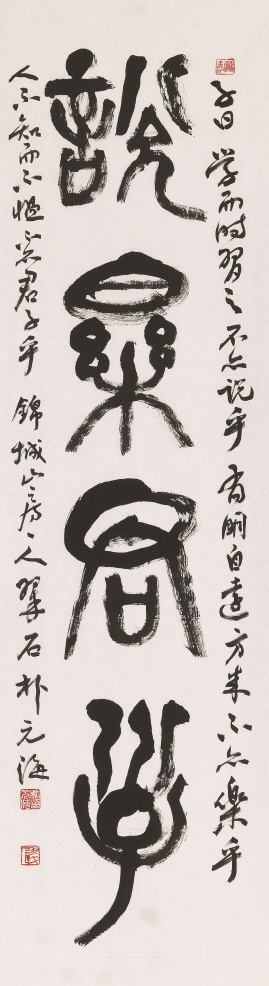 說樂君子
子曰 学而時習之 不亦說乎 有朋自遠方来 不亦樂乎
人不知而不慍 不亦君子乎 錦城山房主人 翠石 朴元海